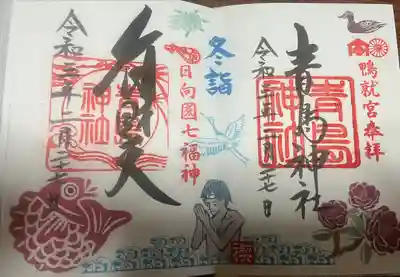 鴨就宮奉拝
青島神社
青島
神社
令和三年十二月二十七日
冬詣
日向國七福神
弁財天
青島
神社
令和三年十二月二十七日
禊